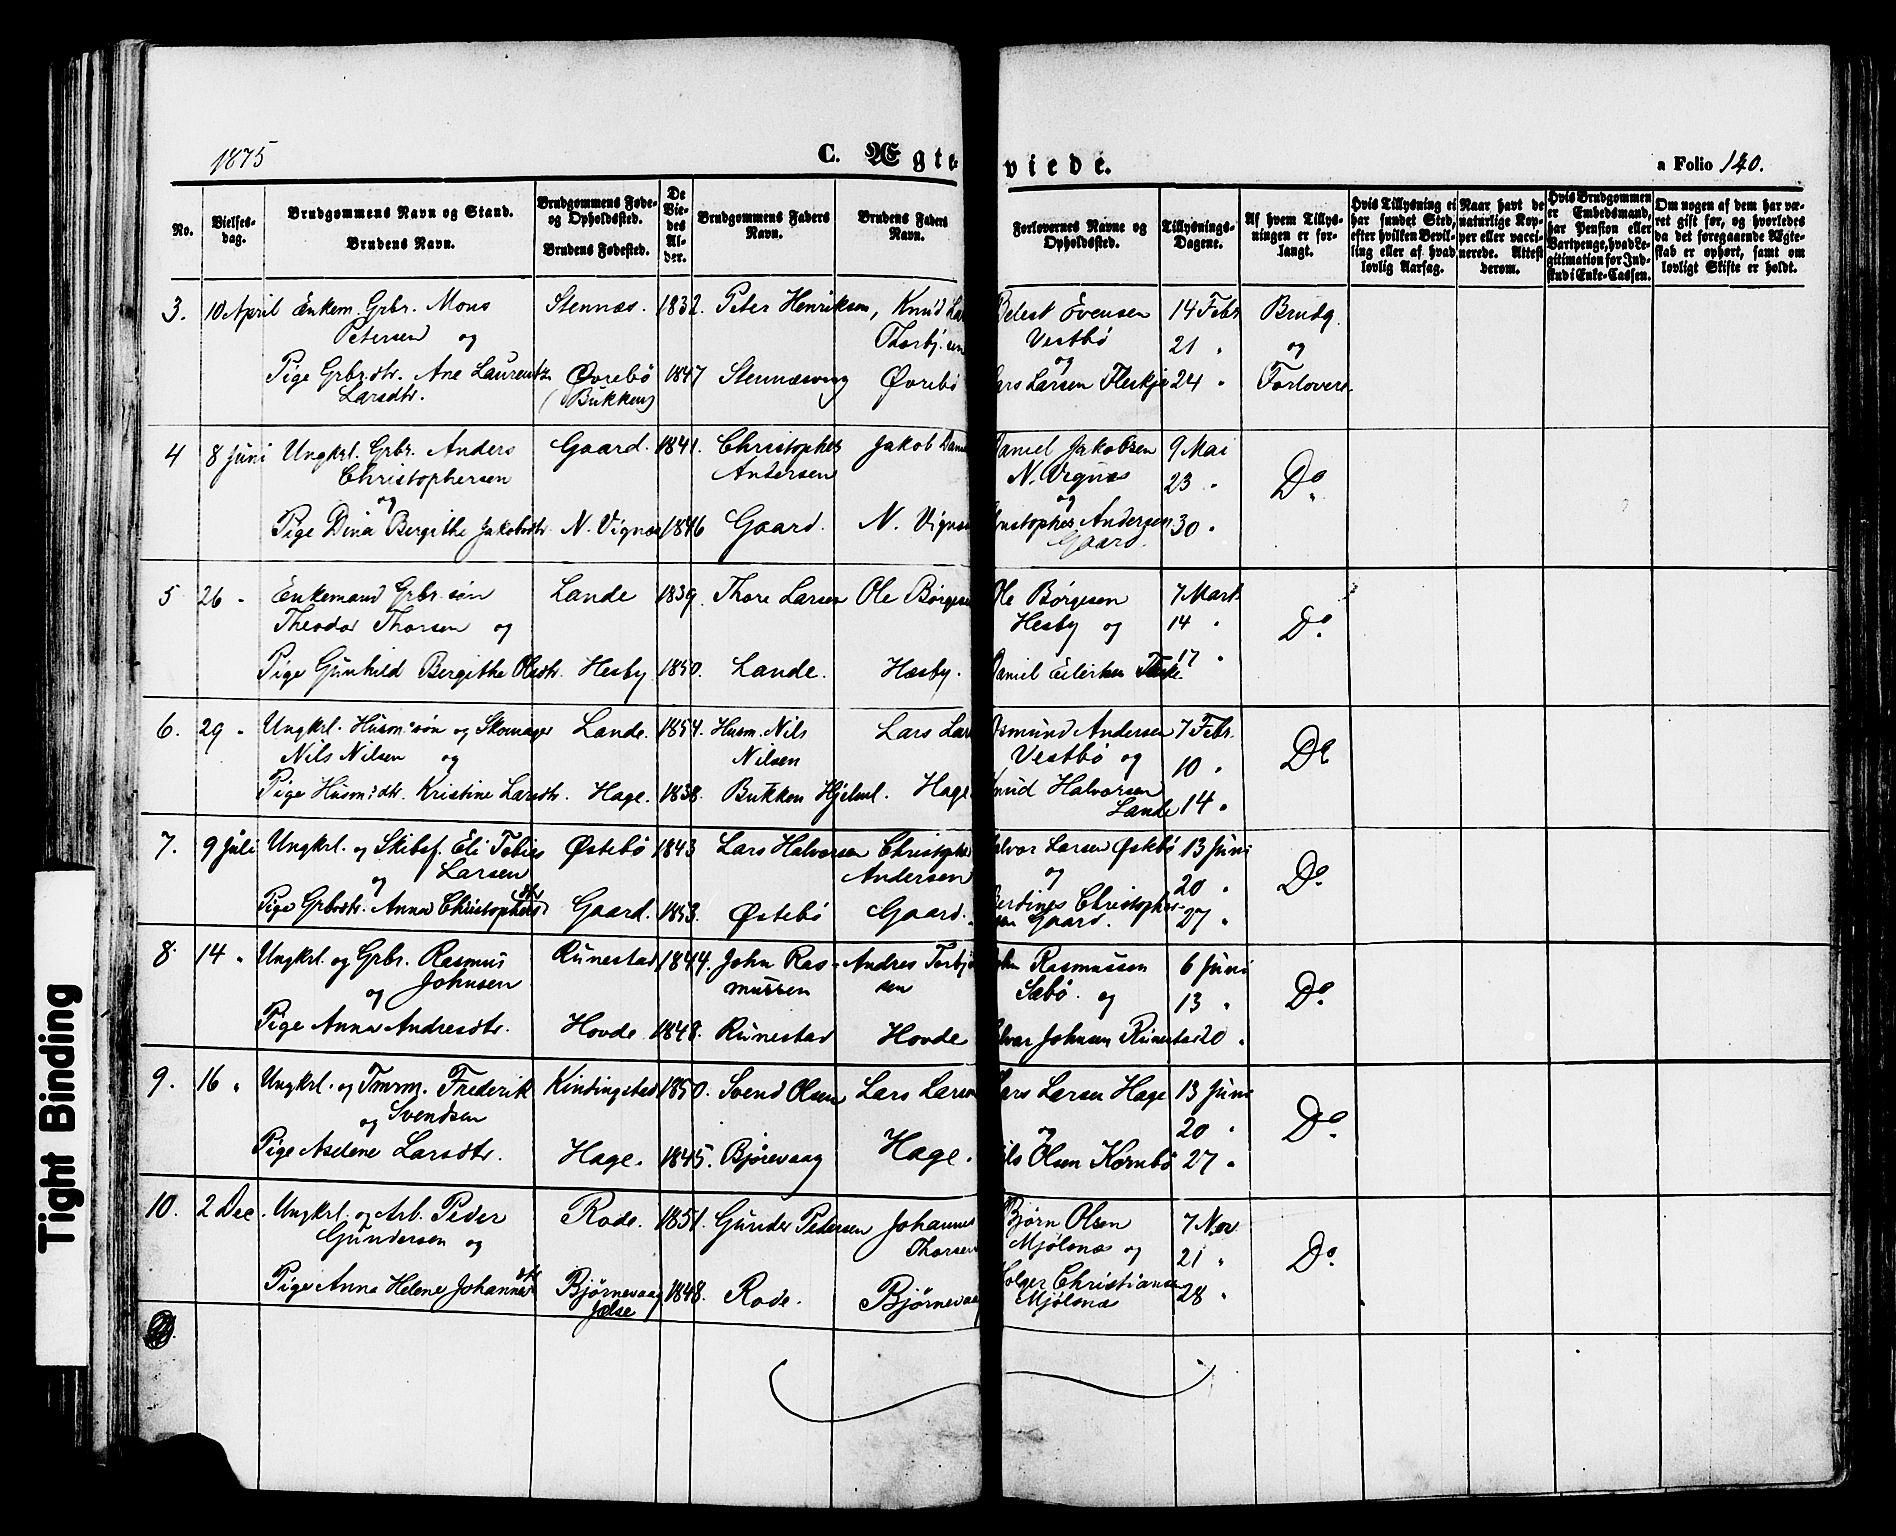 1875
C. Ægteviede.
a Folio 140.
No.
Vielses-
dag.
Brudgommens Navn og Stand.
Brudens Navn.
Brudgommens Føde-
og Opholdssted.
Brudens Fødested.
De
Vie-
des
Al-
der.
Brudgommens Faders
Navn.
Brudens Faders
Navn.
Forlovernes Navne og
Opholdssted.
Tillysnings-
Dagene.
Af hvem Tillys-
ningen er for-
langt.
Hvis Tillysning ei
har fundet Sted,
efter hvilken Bevil-
ling eller af hvad
lovlig Aarsag.
Naar havt de
naturlige Kop-
per eller vacci-
nerede. Attest
derom.
Hvis Brudgommen
er Embedsmand,
har Pension eller
Vartpenge, hvad Le-
gitimation for Ind-
skud i Enke-Cassen.
Om nogen af dem har væ-
ret gift før, og hvorledes
da det foregaaende Ægte-
stab er ophørt, samt om
lovligt Skifte er holdt.
3. 10 April Enkem. Grbr. Mons Stennæs. 1832. Peter Henriksen, Knud Evensen 14 Febr Brudg.
Petersen og Vestbø 21 " og
Pige Grbr.dtr. Ane Øvrebø 1847 Stennæsvag Øvrebø og Lars Larsen 24 " Forlovere
Larsdtr. (Bukken)
4 8 Juni Ungkrl. Grbr. Anders Gaard. 1841. Christopher Jakob Daniel Jakobsen 9 Mai
Christophersen Andersen N. Vignæs 23 " Do
og og
Pige Dina Bergithe Jakobsdtr. N. Vignæs 1846 Gaard. N. Vignæs Christopher Andersen 30 "
Gaard.
5 26 " Enkemand Grbr. søn Lande 1839. Thore Larsen Ole Børgesen Ole Børgesen 7 Marts
Theodor Thorsen og Hesby og 14 " Do.
Pige Gunhild Bergithe Olsdtr. Hesby 1850. Lande. Hæsby. Daniel 17 "
6. 29 " Ungkrl. Husm. søn og Skomager Lande. 1854. Husm. Nils Lars Osmund Andersen 7 Febr.
Nils Nilsen og Nilsen Vestbø og 10 " Do
Pige Husm: dtr. Kristine Larsdtr. Hage. 1838. Bukken Hjelml. Hage Knud Halvorsen
Lande 14 "
7. 9 Juli Ungkrl. og Skibsf. Eli Tobias Østebø 1843 Lars Halvorsen Christopher Halvor Larsen Østebø 13 Juni
Larsen Andersen og 20 " Do.
og
Pige Grbrdtr. Anna Christophersdtr Gaard. 1853. Østebø Gaard. Christopher- 27 "
sen Gaard.
8. 14 " Ungkrl. og Grbr. Rasmus Runestad 1844. John Ras- Andres Torbjø John Rasmussen 6 Juni
Johnsen mussen sen Sæbø. og 13 " Do.
og
Pige Anna Andresdtr. Hovde 1848. Runestad Hovde Halvar Johnsen Runestad 20 "
9. 16 " Ungkrl. og Tmrm. Frederik Kindingstad 1850. Svend Olsen Lars Larsen Lars Larsen Hage 13 Juni
og Svendsen og 20 " Do.
Pige Aselene Larsdtr. Hage. 1845. Bjørevaag Hage. Nils Olsen Kornbø 27 "
10. 2 Dec. Ungkrl. og Arb. Peder Rode. 1851. Gunder Pedersen Johannes Bjørn Olsen 7 Nov
Gundersen og Thorsen Mjølsnæs og 21 " Do.
Pige Anna Helene Johannesdtr Bjørnevaag 1848. Rode. Bjørnevaag Holger Christiansen 28 "
Jelse Mjølsnæs
Tight Binding